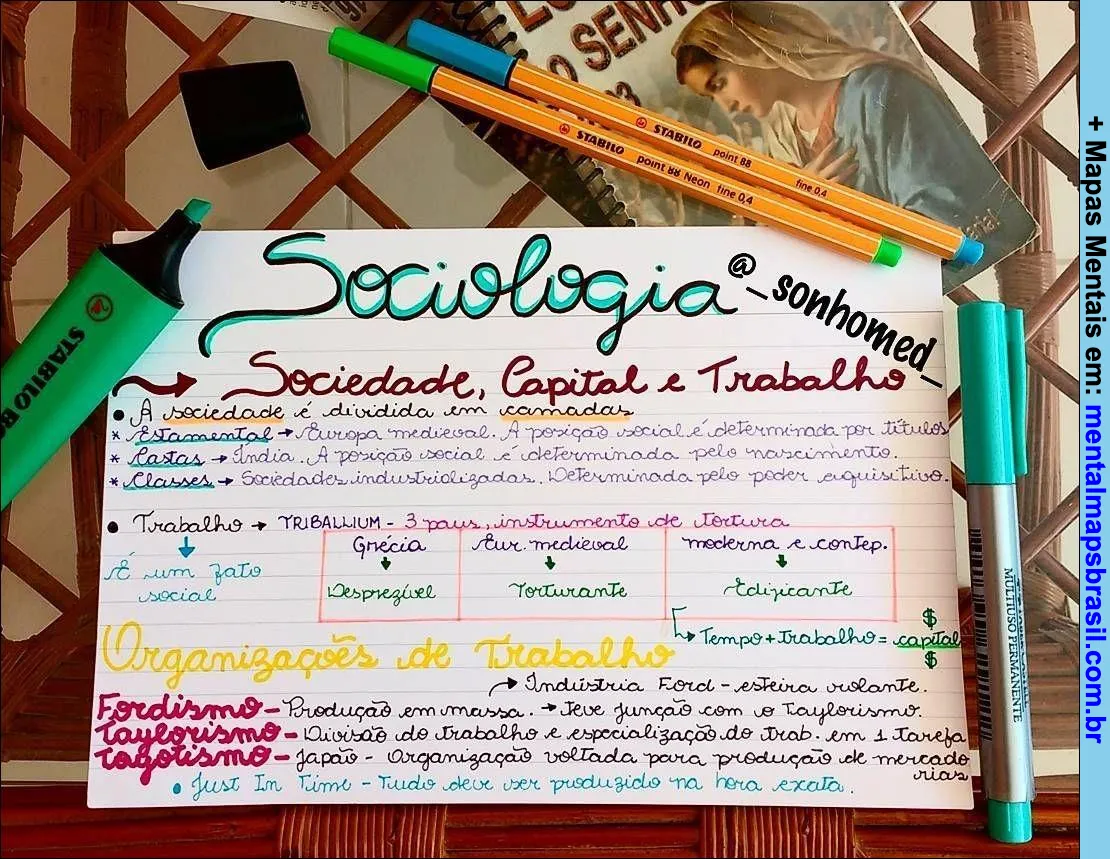 LO
O SENHOR
STABILO point 88 fine 0,4
STABILO point 88 Neon fine 0,4
STABILO BO
Sociologia
@_sonhomed_
Sociedade, Capital e Trabalho
• A sociedade é dividida em camadas
* Estamental → Europa medieval. A posição social é determinada por títulos
* Castas → Índia. A posição social é determinada pelo nascimento.
* Classes → Sociedades industrializadas. Determinada pelo poder aquisitivo.
• Trabalho → TRIBALLIUM - 3 paus, instrumento de tortura
É um fato
social
Grécia Eur. medieval moderna e contep.
Desprezível Torturante Edificante
Tempo + trabalho = capital
$
$
Organizações de Trabalho
→ Indústria Ford - esteira volante.
Fordismo - Produção em massa. → Teve junção com o Taylorismo.
Taylorismo - Divisão do trabalho e especialização do trab. em 1 tarefa
Toyotismo - Japão - Organização voltada para produção de mercado
rias
• Just In Time - Tudo deve ser produzido na hora exata.
MULTIUSO PERMANENTE
+ Mapas Mentais em: mentalmapsbrasil.com.br